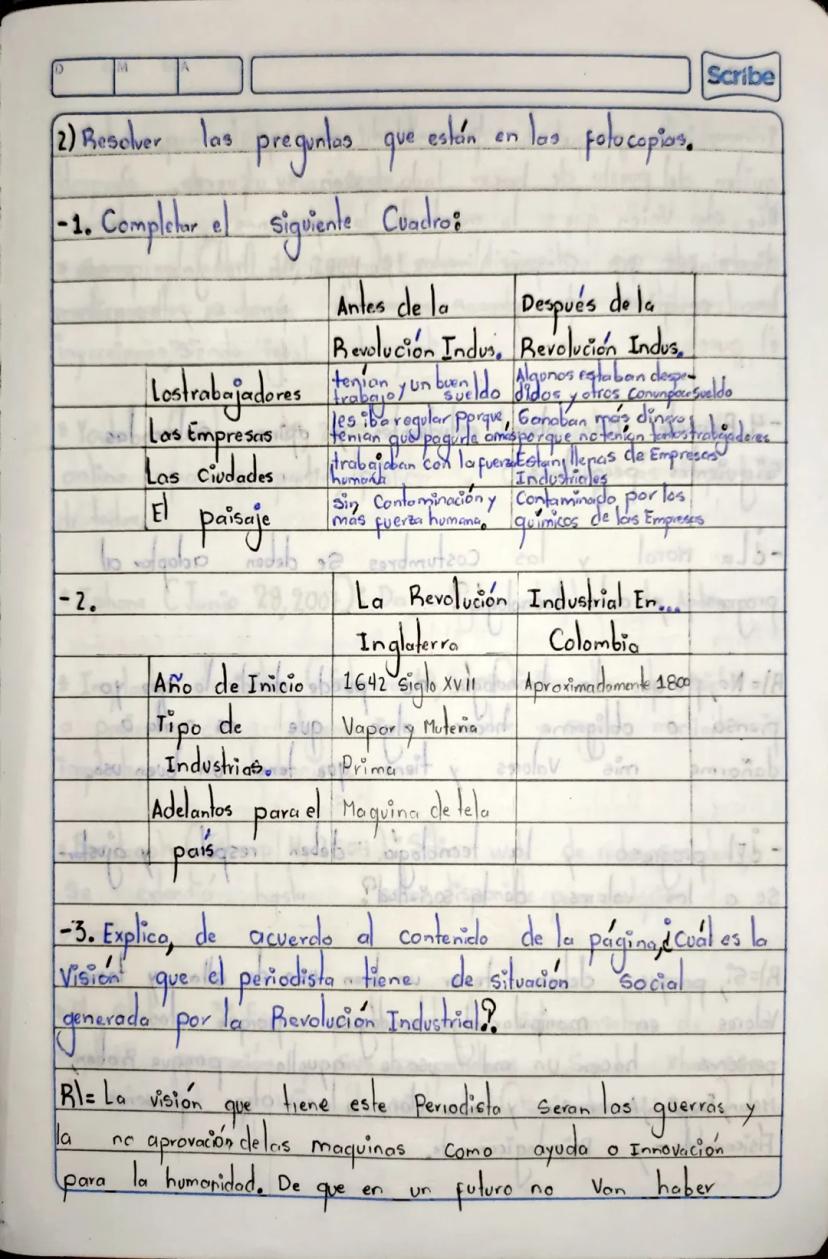 D M A
Scribe
2) Resolver las preguntas que están en las fotocopias.
-1. Completar el siguiente Cuadro:
Antes de la Después de la
Revolución Indus. Revolución Indus.
Los trabajadores tenían y un buen trabajo/sueldo Algunos estaban despedidos y otros con un par sueldo
Las Empresas les iba regular porque tenían que pagarle a más Ganaban más dinero porque no tenían tantos trabajadores
Las Ciudades trabajaban con la fuerza humana Están llenas de Empresas Industriales
El paisaje sin Contaminación y más fuerza humana. Contaminado por los químicos de las Empresas
-2. La Revolución Industrial En...
Inglaterra Colombia
Año de Inicio 1642 siglo XVII Aproximadamente 1800
Tipo de Vapor y Materia
Industrias. Prima
Adelantos para el Maquina de tela
país
-3. Explica, de acuerdo al contenido de la página, ¿Cuál es la
Visión que el periodista tiene de situación social
generada por la Revolución Industrial?
R\= La visión que tiene este Periodista seran las guerras y
la no aprovación de las maquinas como ayuda o Innovación
para la humanidad. De que en un futuro no Van haber